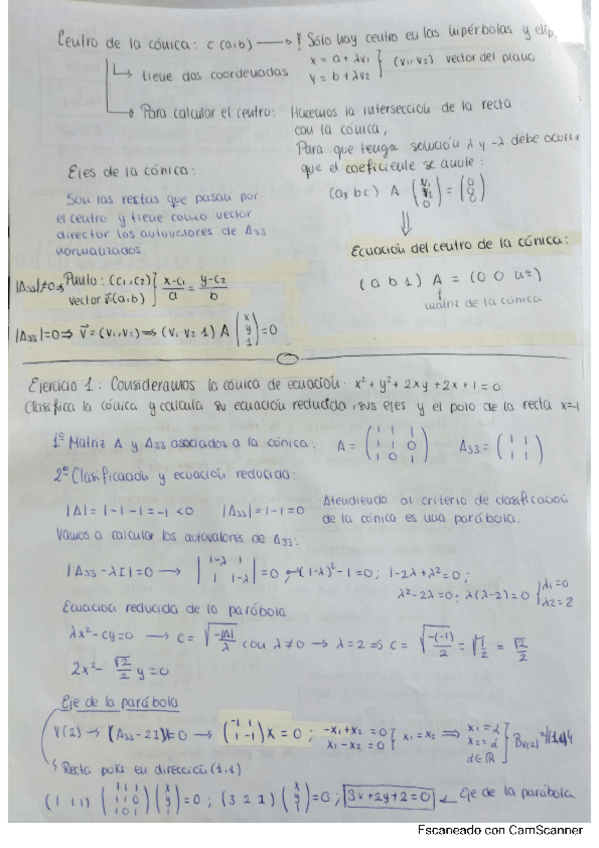 Centro de la cónica: c (a,b) → ! Sólo hay centro en las hipérbolas y elip
↳ tiene dos coordenadas
x = a + λv1
y = b + λv2 } (v1, v2) vector del plano
↳ Para calcular el centro: Hacemos la intersección de la recta
con la cónica;
Para que tenga solución λ y -λ debe ocurrir
que el coeficiente se anule:
(a, b c) A (v1 v2 0) = (0 0 0)
⇓
Ecuación del centro de la cónica:
(a b 1) A = (0 0 u²)
↑
matriz de la cónica
Ejes de la cónica:
Son las rectas que pasan por
el centro y tiene como vector
director los autovalores de A33
normalizados
|A33|≠0 ⇒ Punto: (c1, c2)
vector v⃗(a,b) } x-c1/a = y-c2/b
|A33|=0 ⇒ v⃗ = (v1, v2) ⇒ (v1 v2 1) A (x y 1) = 0
Ejercicio 1: Consideramos la cónica de ecuación: x² + y² + 2xy + 2x + 1 = 0
Clasifica la cónica y calcula su ecuación reducida, sus ejes y el polo de la recta x=-1
1º Matriz A y A33 asociados a la cónica: A = (1 1 1 / 1 1 0 / 1 0 1) A33 = (1 1 / 1 1)
2º Clasificación y ecuación reducida:
|A| = 1-1-1 = -1 < 0 |A33| = 1-1 = 0 Atendiendo al criterio de clasificación
de la cónica es una parábola.
Vamos a calcular los autovalores de A33:
|A33 - λI| = 0 → |1-λ 1 / 1 1-λ| = 0; (1-λ)² - 1 = 0; 1-2λ+λ² = 0;
λ² - 2λ = 0; λ(λ-2) = 0 { λ1 = 0 λ2 = 2
Ecuación reducida de la parábola
λx² - cy = 0 → c = √(-|A|/λ) con λ ≠ 0 → λ = 2 ⇒ c = √(-(-1)/2) = √(1/2) = √2/2
2x² - √2/2 y = 0
Eje de la parábola
V(2) → (A33 - 2I)X = 0 → (-1 1 / 1 -1) X = 0; -x1 + x2 = 0
x1 - x2 = 0 } x1 = x2 ⇒ x1 = α
x2 = α
α ∈ ℝ } Bv(2) = {(1,1)}
↳ Recta polar en dirección (1,1)
(1 1 1) (1 1 1 / 1 1 0 / 1 0 1) (x y 1) = 0; (3 2 2) (x y 1) = 0; 3x+2y+2=0 ← Eje de la parábola
Escaneado con CamScanner